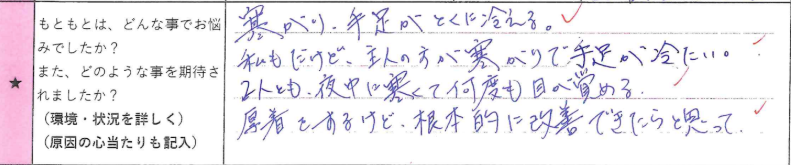 もともとは、どんな事でお悩
みでしたか？
また、どのような事を期待さ
れましたか？
（環境・状況を詳しく）
（原因の心当たりも記入）
★
寒がり、手足がとくに冷える。
私もだけど、主人の方が寒がりで手足が冷たい。
2人とも、夜中に寒くて何度も目が覚める。
厚着をするけど、根本的に改善できたらと思って。